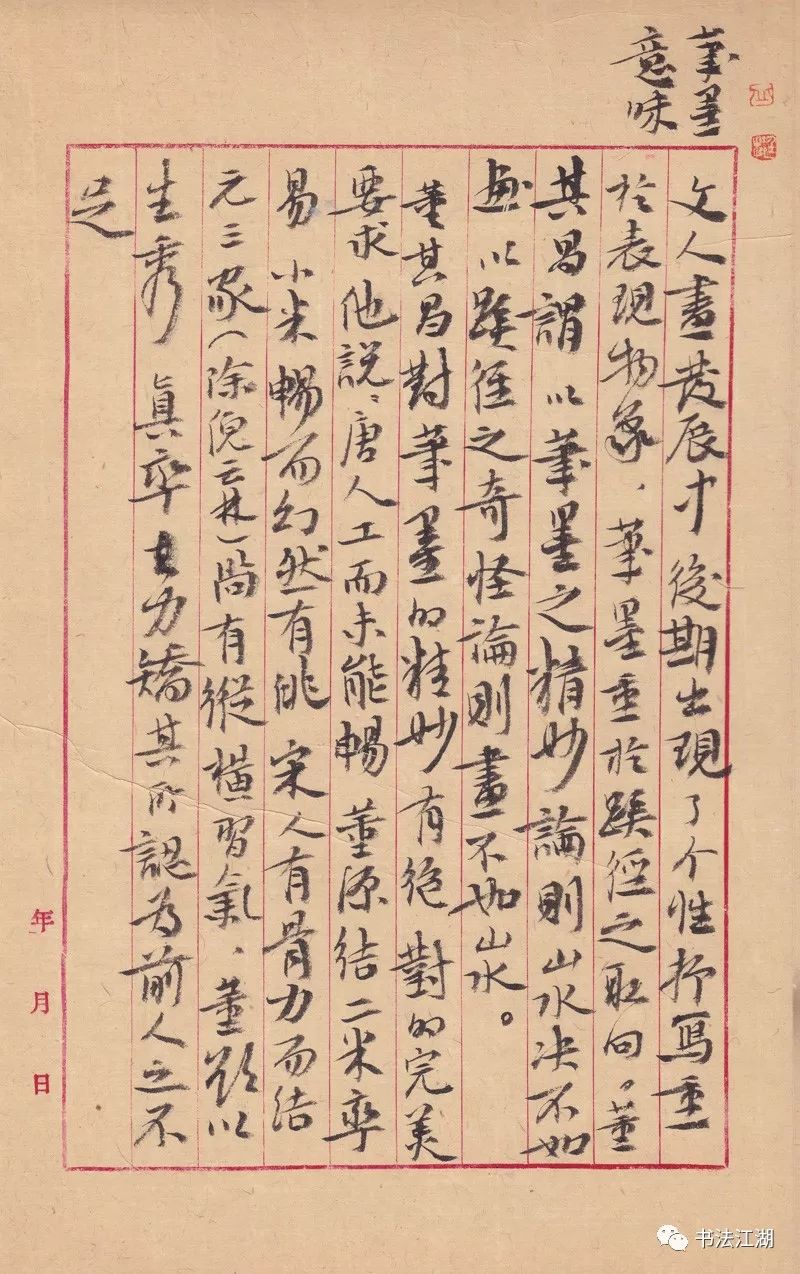 筆墨
意味
文人畫发展中後期出現了个性抒寫重
於表現物象、筆墨重於蹊徑之取向。董
其昌謂以筆墨之精妙論則山水决不如
畫以蹊徑之奇怪論則畫不如山水。
董其昌對筆墨的精妙有絕對的完美
要求他說：唐人工而未能暢董源結二米率
易小米暢而幻然有佻宋人有骨力而結
元三家（除倪云林）尚有縱橫習氣、董欲以
生秀真率去力矯其所認为前人之不
足
年月日
书法江湖